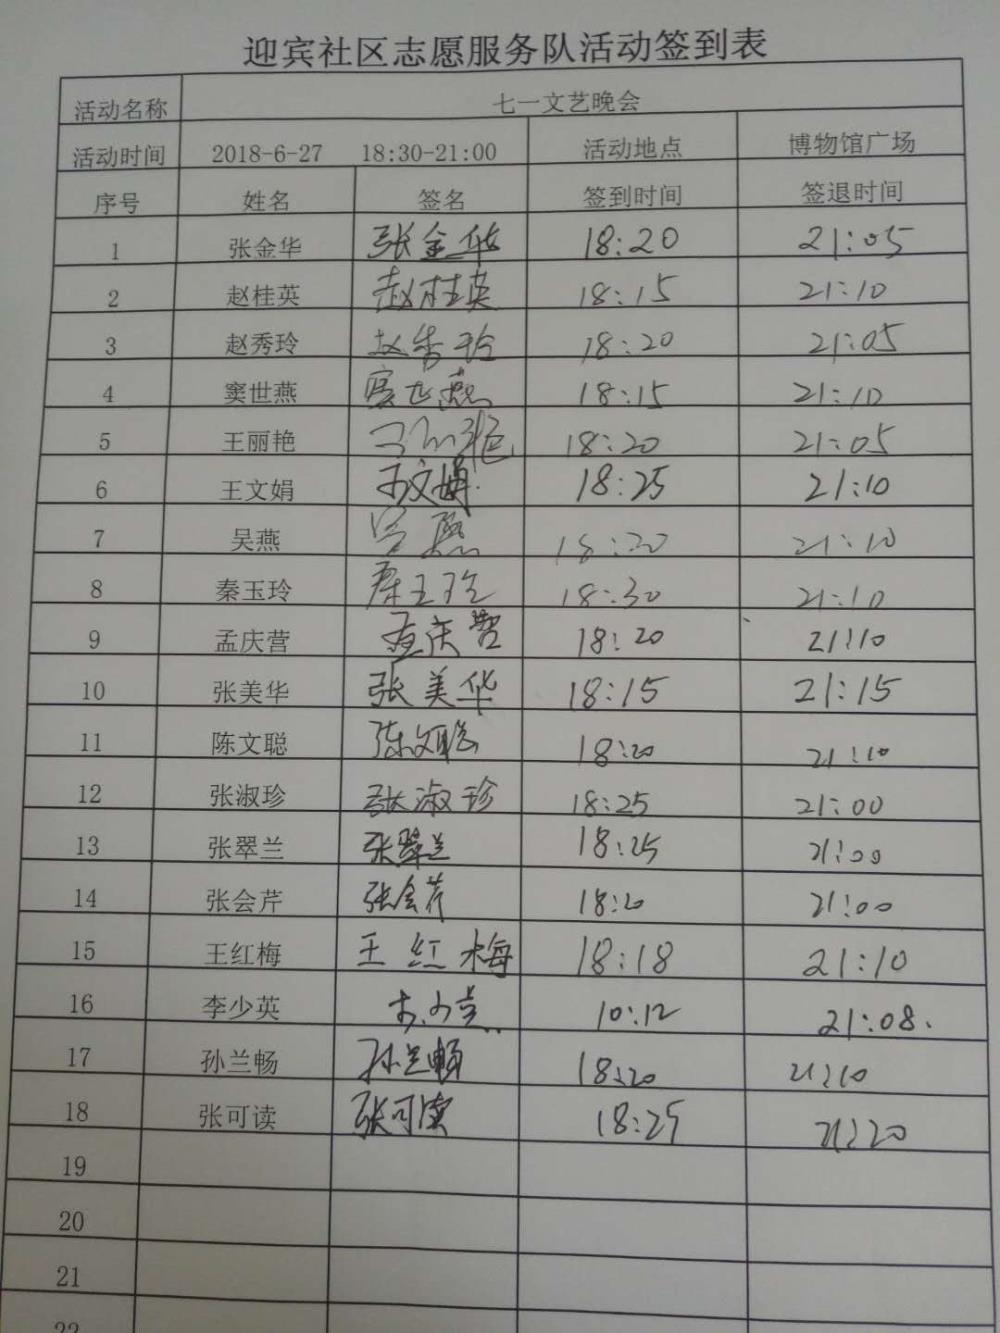 迎宾社区志愿服务队活动签到表
活动名称 七一文艺晚会
活动时间 2018-6-27 18:30-21:00 活动地点 博物馆广场
序号 姓名 签名 签到时间 签退时间
1 张金华 张金华 18:20 21:05
2 赵桂英 赵桂英 18:15 21:10
3 赵秀玲 赵秀玲 18:20 21:05
4 窦世燕 窦世燕 18:15 21:10
5 王丽艳 王丽艳 18:20 21:05
6 王文娟 王文娟 18:25 21:10
7 吴燕 吴燕 18:20 21:10
8 秦玉玲 秦玉玲 18:30 21:10
9 孟庆营 孟庆营 18:20 21:10
10 张美华 张美华 18:15 21:15
11 陈文聪 陈文聪 18:20 21:10
12 张淑珍 张淑珍 18:25 21:00
13 张翠兰 张翠兰 18:25 21:00
14 张会芹 张会芹 18:20 21:00
15 王红梅 王红梅 18:18 21:10
16 李少英 李少英 10:12 21:08.
17 孙兰畅 孙兰畅 18:20 21:10
18 张可读 张可读 18:25 21:20
19
20
21
22